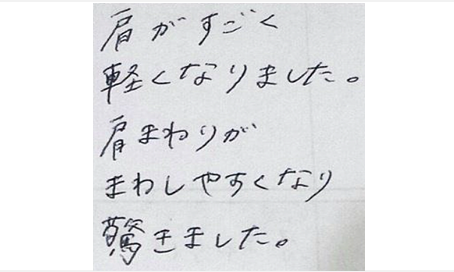 肩がすごく
軽くなりました。
肩まわりが
まわしやすくなり
驚きました。